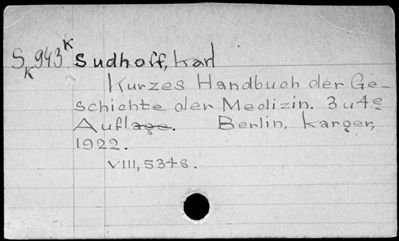 S K 943 K Sudhoff, Karl
Kurzes Handbuch der Ge-
schichte der Medizin. 3 u 4e
Auflage. Berlin, Karger,
1922.
VIII, 534 S.